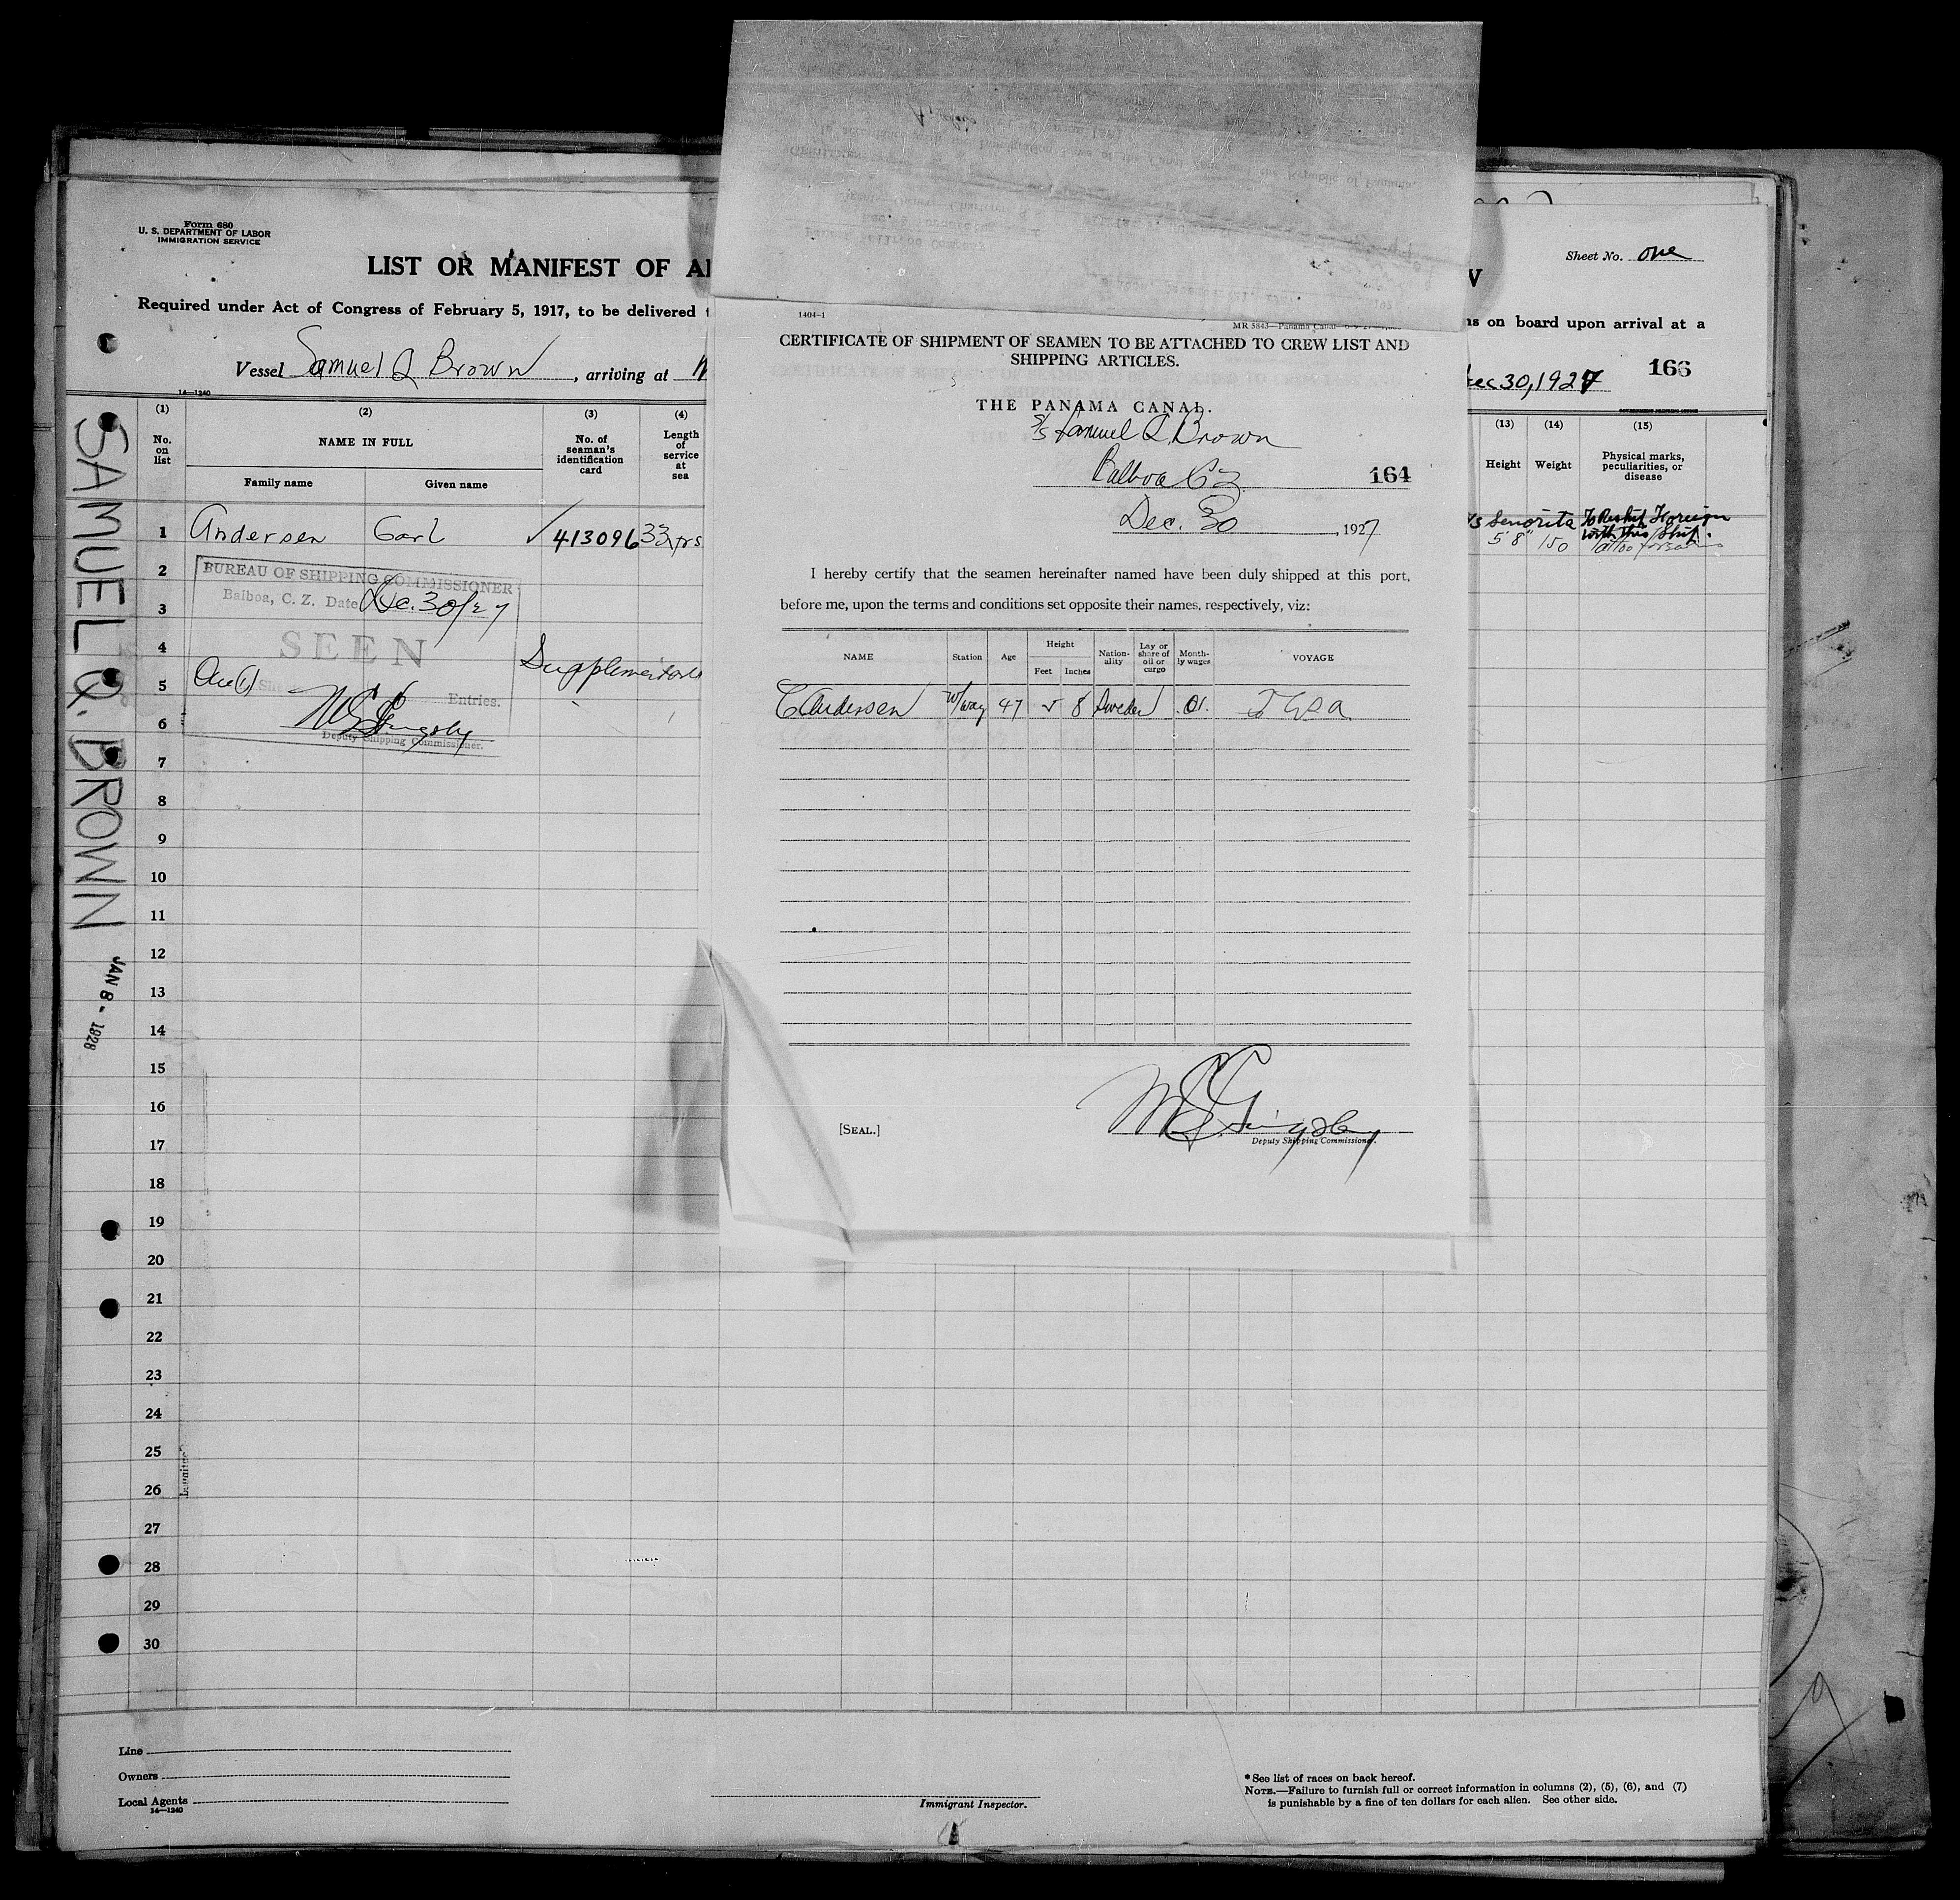 Form 680
U. S. DEPARTMENT OF LABOR
IMMIGRATION SERVICE
LIST OR MANIFEST OF
Required under Act of Congress of February 5, 1917, to be delivered
Vessel Samuel Q Brown, arriving at
14—1240
(1) (2) (3) (4)
No. on list
NAME IN FULL
Family name Given name
No. of seaman's identification card
Length of service at sea
1 Andersen Carl 413096 33 yrs
2
3
4
5
6
7
8
9
10
11
12
13
14
15
16
17
18
19
20
21
22
23
24
25
26
27
28
29
30
BUREAU OF SHIPPING COMMISSIONER
Balboa, C. Z. Date Dec. 30/27
SEEN
One (1) Entries.
Deputy Shipping Commissioner.
SAMUEL Q. BROWN
JAN 8 - 1928
Line
Owners
Local Agents
14—1240
Immigrant Inspector.
1404-1
MR 5843—Panama Canal
CERTIFICATE OF SHIPMENT OF SEAMEN TO BE ATTACHED TO CREW LIST AND
SHIPPING ARTICLES.
THE PANAMA CANAL.
S/S Samuel Q. Brown
Balboa CZ 164
Dec. 30, 1927
I hereby certify that the seamen hereinafter named have been duly shipped at this port,
before me, upon the terms and conditions set opposite their names, respectively, viz:
NAME Station Age Height Feet Inches Nationality Lay or share of oil or cargo Monthly wages VOYAGE
C Andersen W/way 47 5 8 Sweden .01
[SEAL.]
Deputy Shipping Commissioner.
Sheet No. one
on board upon arrival at a
Dec 30, 1927 166
(13) (14) (15)
Height Weight
Physical marks, peculiarities, or disease
Senorita To Reship Foreign
with this Ship.
5'8" 150
*See list of races on back hereof.
NOTE.—Failure to furnish full or correct information in columns (2), (5), (6), and (7)
is punishable by a fine of ten dollars for each alien. See other side.